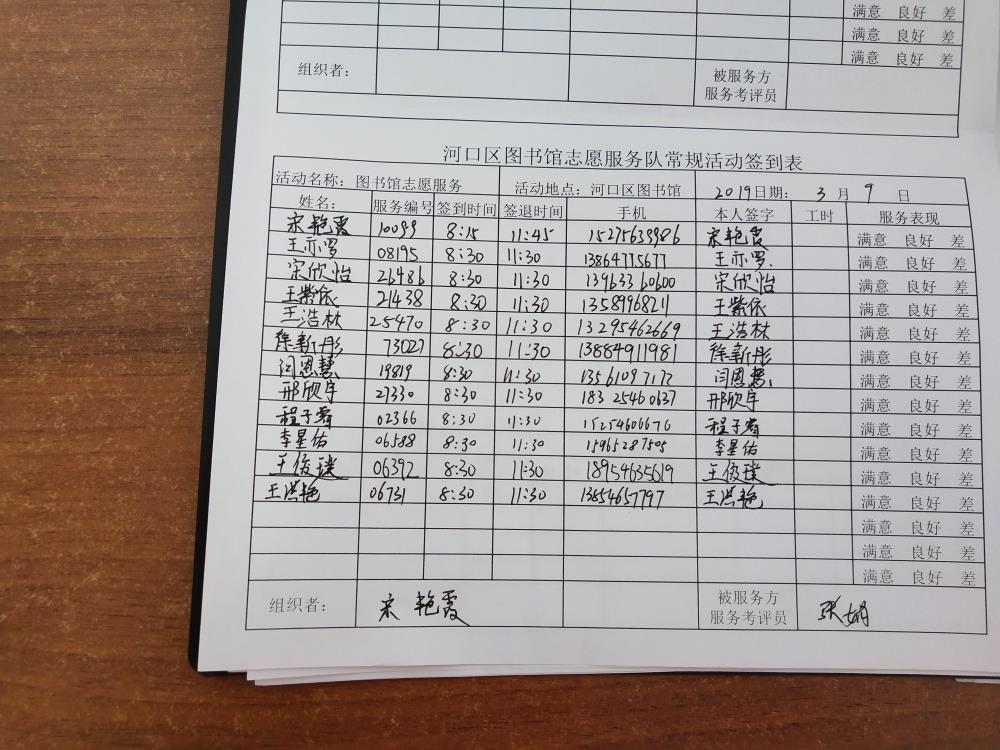 满意 良好 差
满意 良好 差
满意 良好 差
组织者： 被服务方 服务考评员
河口区图书馆志愿服务队常规活动签到表
活动名称：图书馆志愿服务 活动地点：河口区图书馆 2019日期： 3 月 9 日
姓名： 服务编号 签到时间 签退时间 手机 本人签字 工时 服务表现
宋艳霞 10099 8:15 11:45 15275638986 宋艳霞 满意 良好 差
王亦罗 08195 8:30 11:30 13864775677 王亦罗. 满意 良好 差
宋欣怡 26486 8:30 11:30 13963360600 宋欣怡 满意 良好 差
王紫依 21438 8:30 11:30 13589968211 王紫依 满意 良好 差
王浩杖 25470 8:30 11:30 13295462669 王浩杖 满意 良好 差
徐新彤 73027 8:30 11:30 13884911981 徐新彤 满意 良好 差
闫恩慧 19819 8:30 11:30 13561097172 闫恩慧 满意 良好 差
邢欣宇 27330 8:30 11:30 18325460637 邢欣宇 满意 良好 差
程子睿 02366 8:30 11:30 15254606676 程子睿 满意 良好 差
李星佑 06588 8:30 11:30 15865287505 李星佑 满意 良好 差
王俊璞 06392 8:30 11:30 18954635619 王俊璞 满意 良好 差
王洪艳 06731 8:30 11:30 13854657797 王洪艳 满意 良好 差
满意 良好 差
满意 良好 差
满意 良好 差
组织者： 宋艳霞 被服务方 服务考评员 张娟